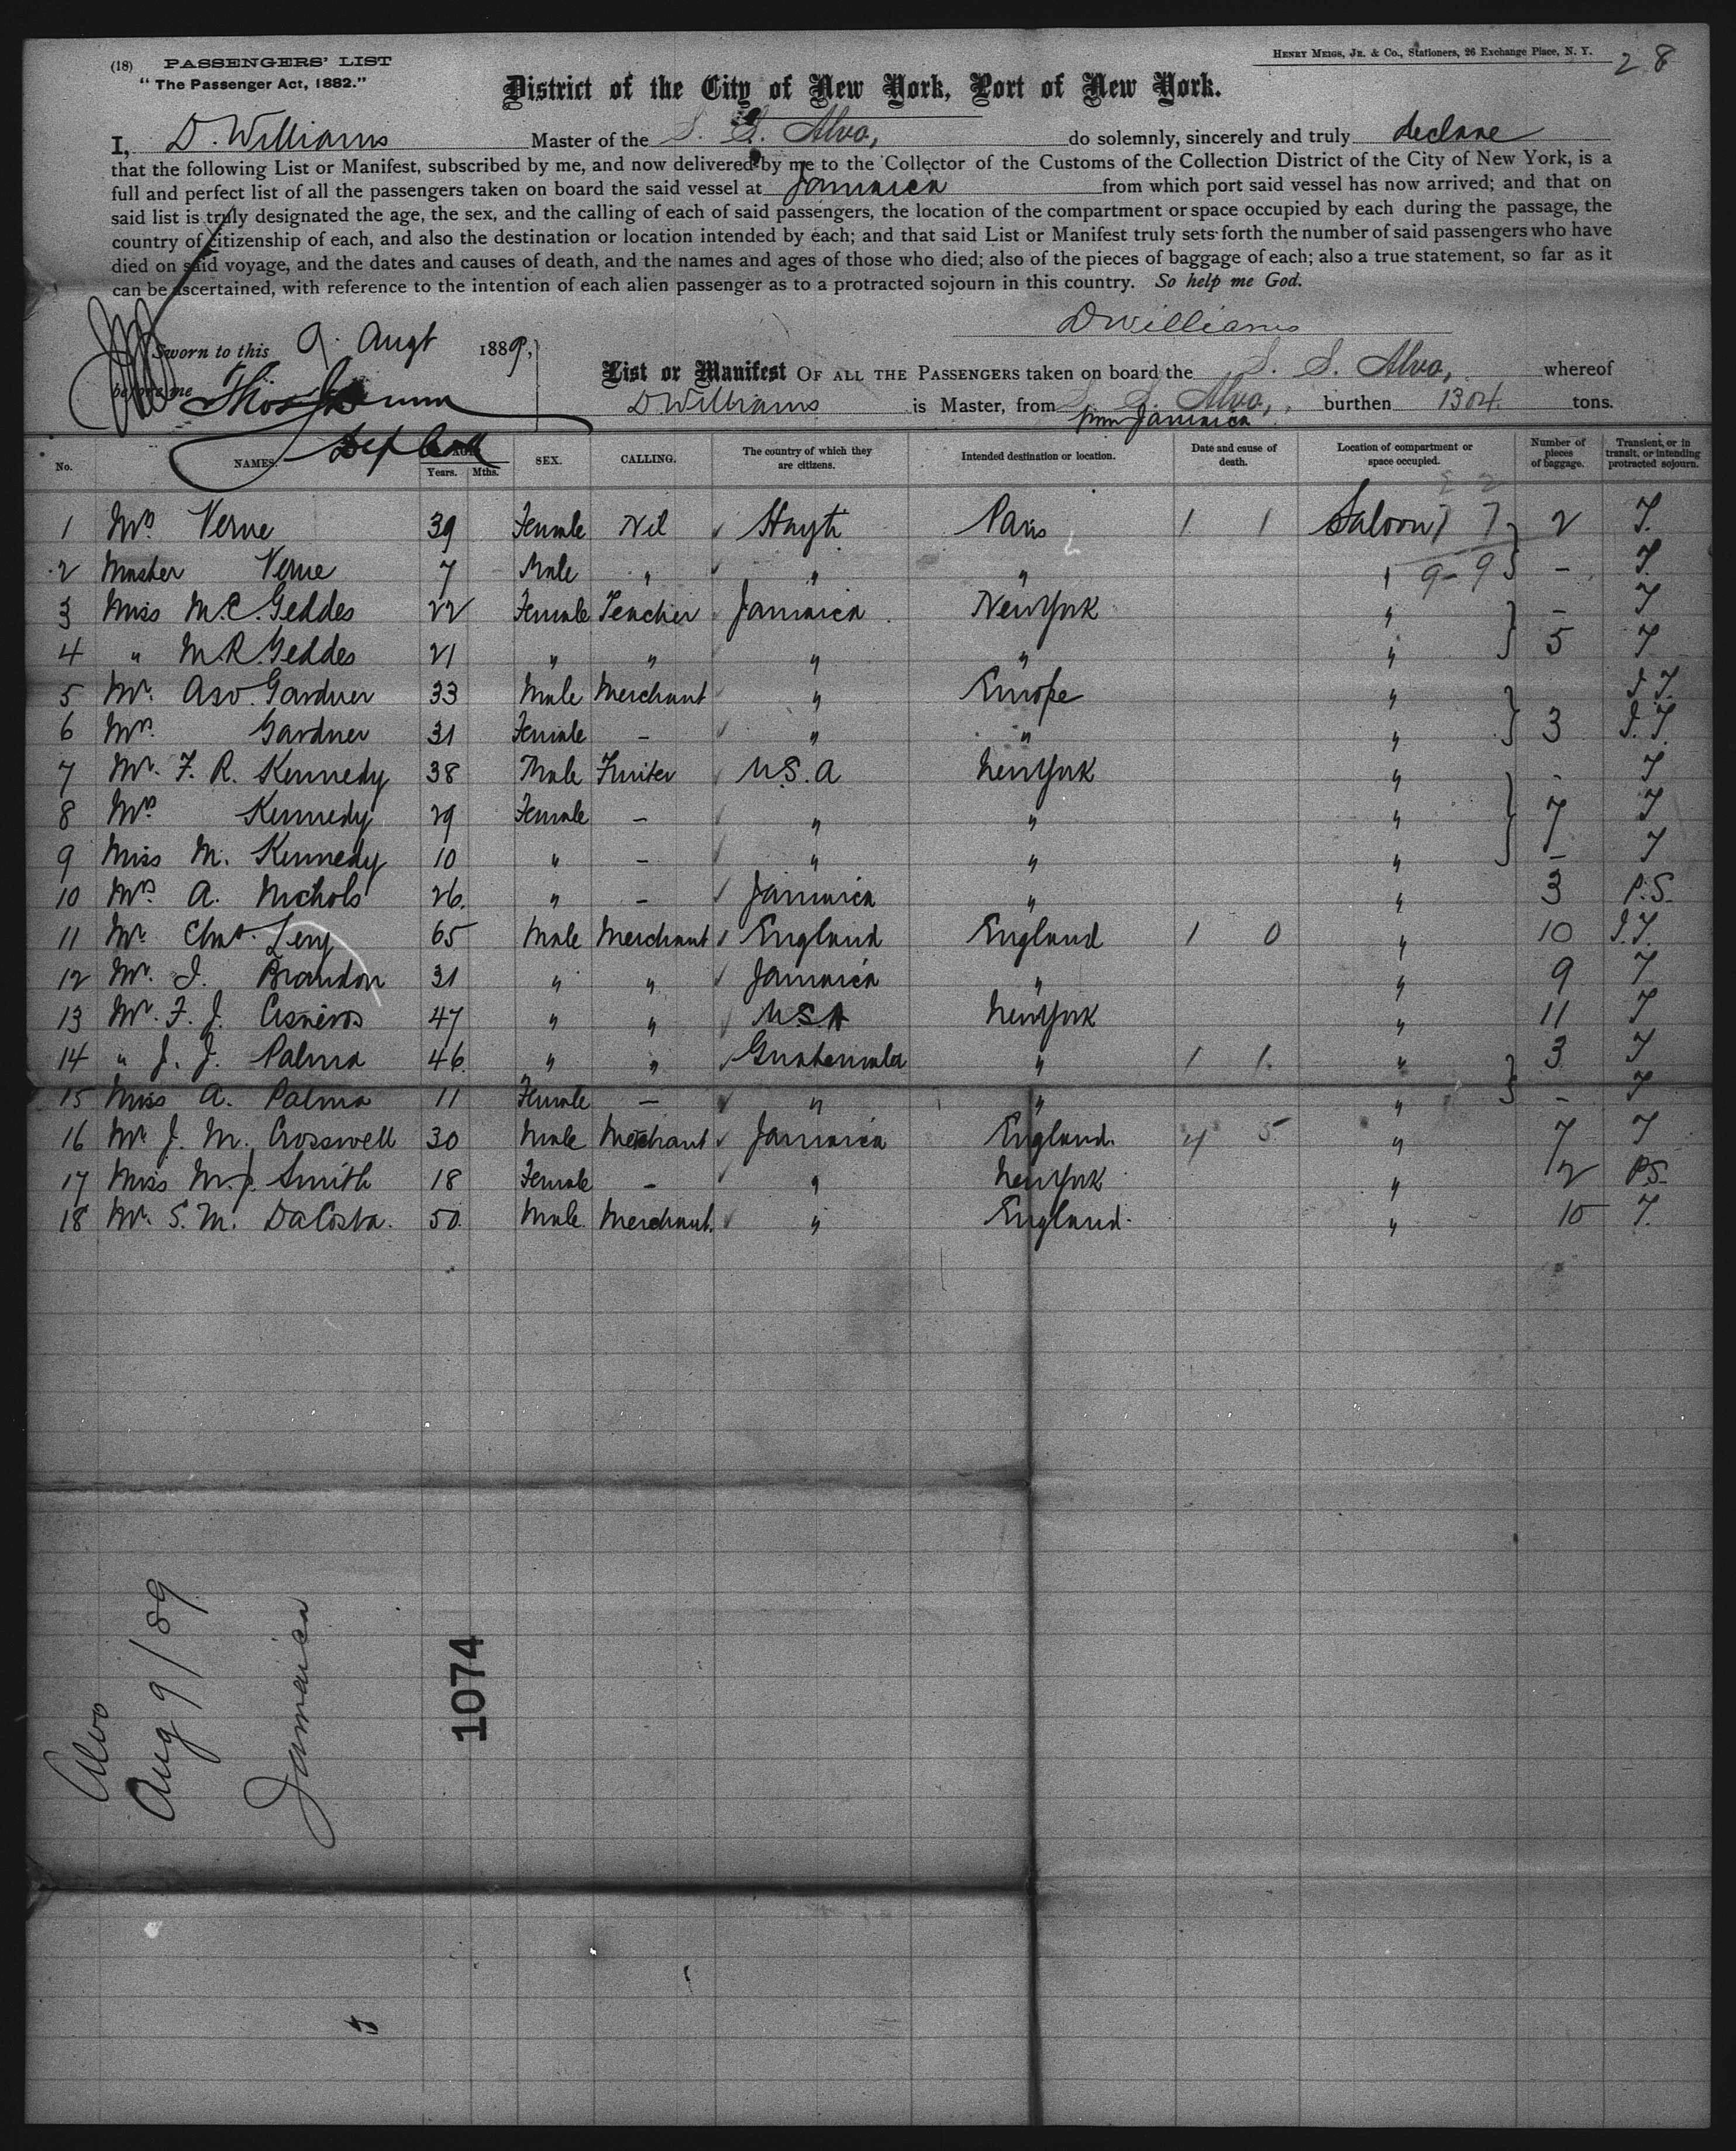 (18) PASSENGERS' LIST
"The Passenger Act, 1882."
HENRY MEIGS, JR. & CO., Stationers, 26 Exchange Place, N. Y.
28
District of the City of New York, Port of New York.
I, D. Williams Master of the S. S. Alvo, do solemnly, sincerely and truly declare
that the following List or Manifest, subscribed by me, and now delivered by me to the Collector of the Customs of the Collection District of the City of New York, is a
full and perfect list of all the passengers taken on board the said vessel at Jamaica from which port said vessel has now arrived; and that on
said list is truly designated the age, the sex, and the calling of each of said passengers, the location of the compartment or space occupied by each during the passage, the
country of citizenship of each, and also the destination or location intended by each; and that said List or Manifest truly sets forth the number of said passengers who have
died on said voyage, and the dates and causes of death, and the names and ages of those who died; also of the pieces of baggage of each; also a true statement, so far as it
can be ascertained, with reference to the intention of each alien passenger as to a protracted sojourn in this country. So help me God.
D Williams
Sworn to this 9. Augt 1889,
before me Thos
Dep Coll
List or Manifest OF ALL THE PASSENGERS taken on board the S. S. Alvo, whereof
D Williams is Master, from S. S. Alvo, burthen 1304 tons.
from Jamaica
No. NAMES. AGE. Years. Mths. SEX. CALLING. The country of which they are citizens. Intended destination or location. Date and cause of death. Location of compartment or space occupied. Number of pieces of baggage. Transient, or in transit, or intending protracted sojourn.
1 Mrs Verne 39 Female Nil Hayti Paris 1 1 Saloon 7 2 T.
2 Master Verne 7 Male " " " " 9-9 - T.
3 Miss M.C. Geddes 22 Female Teacher Jamaica New York " - T
4 " M.R. Geddes 21 " " " " " 5 T
5 Mr. Gardner 33 Male Merchant " Europe " I.T.
6 Mrs. Gardner 31 Female - " " " 3 I.T.
7 Mr. F. R. Kennedy 38 Male Fruiter U.S.A New York " - T
8 Mrs Kennedy 29 Female - " " " 7 T
9 Miss M. Kennedy 10 " - " " " - T
10 Mrs. A. Nichols 26. " - Jamaica " " 3 P.S.
11 Mr. Chas. Levy 65 Male Merchant England England 1 0 " 10 I.T.
12 Mr. I. Brandon 31 " " Jamaica " " 9 T
13 Mr. F. J. Cisneros 47 " " USA New York " 11 T
14 " J. J. Palma 46. " " Guatemala " 1 1. " 3 T
15 Miss A. Palma 11 Female - " " " - T
16 Mr. J. M. Crosswell 30 Male Merchant Jamaica England. 4 5 " 7 T
17 Miss M.J. Smith 18 Female - " New York " 12 P.S.
18 Mr. S. M. DaCosta. 50. Male. Merchant. " England. " 10 T.
Alvo
Aug 9/89
Jamaica
1074